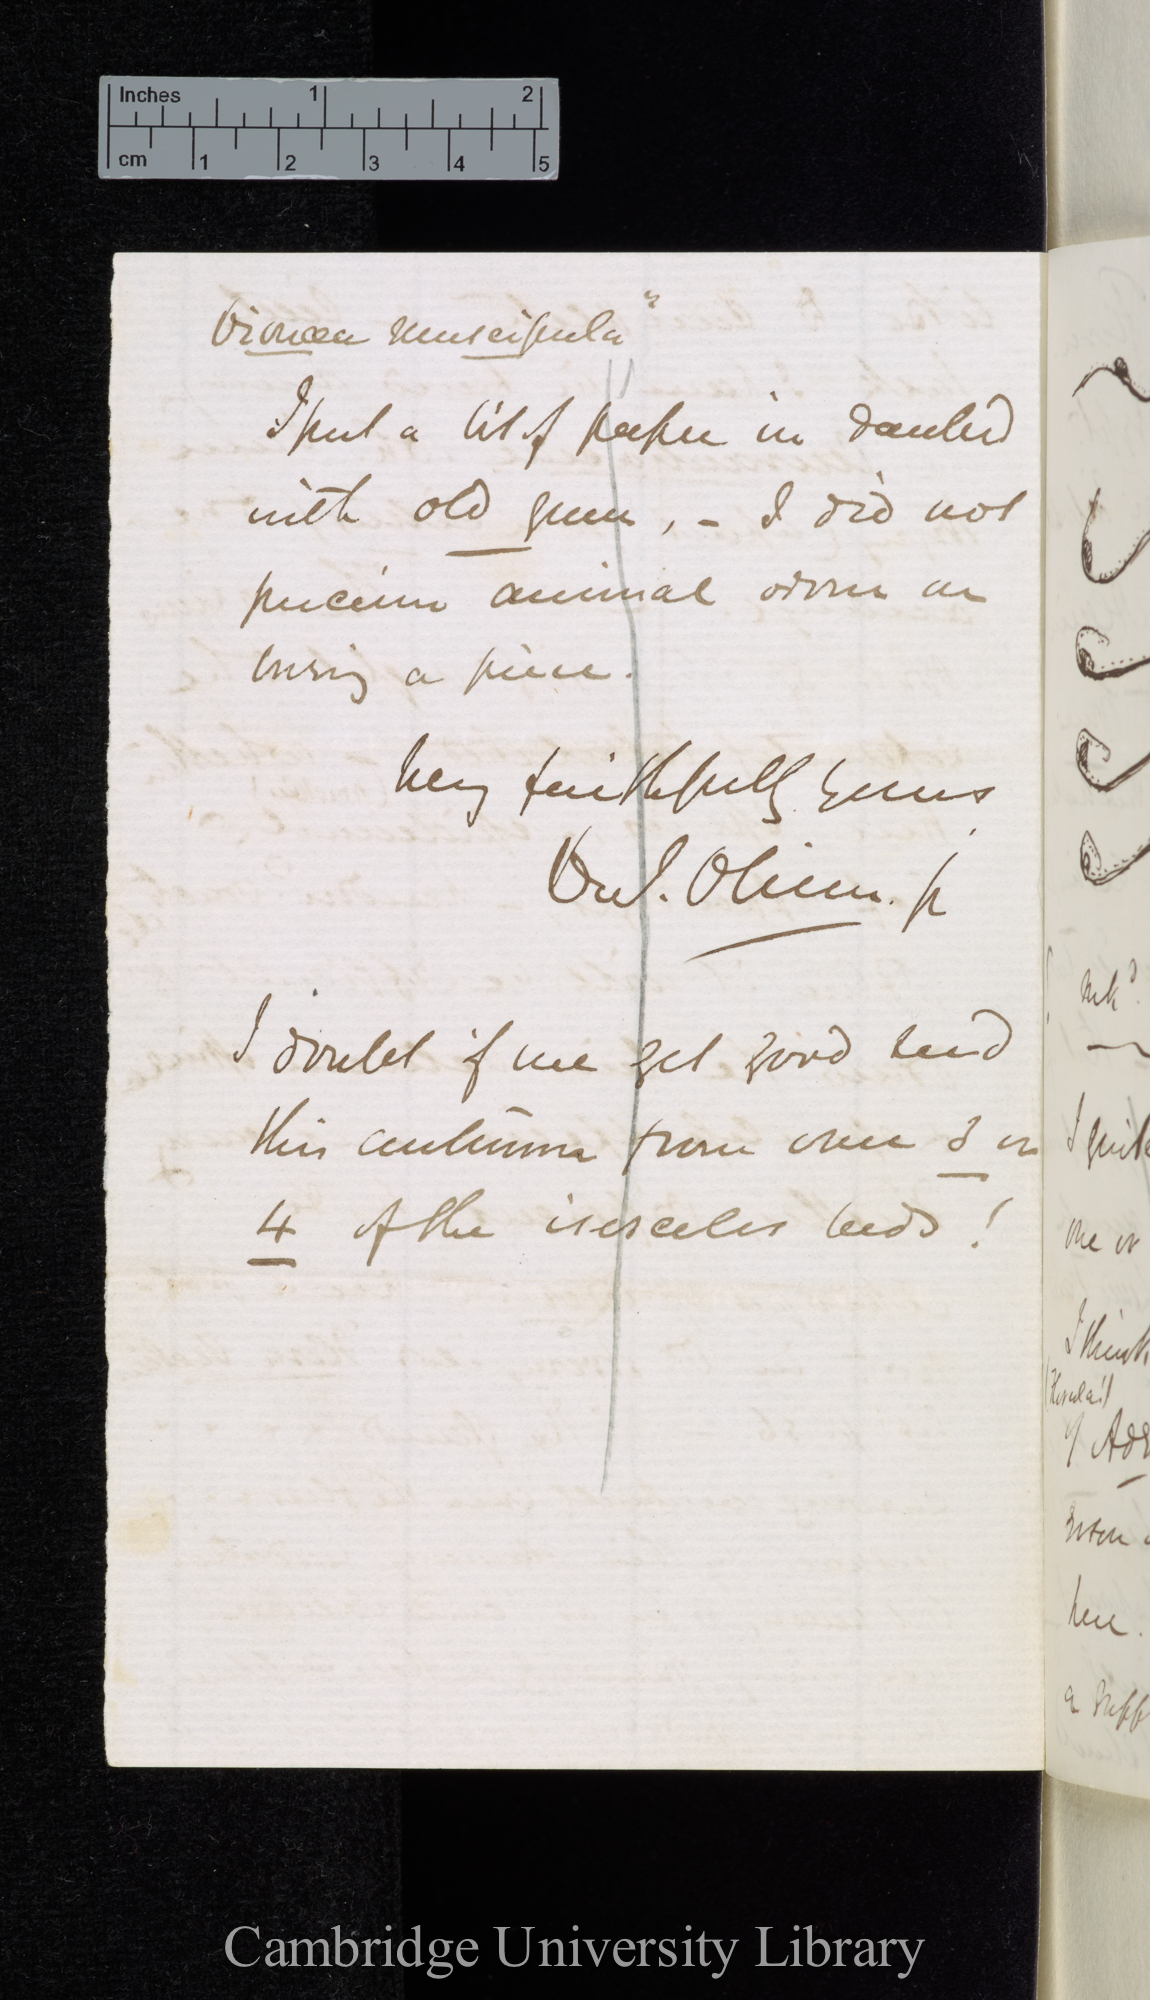 Inches 1 2
cm 1 2 3 4 5
Dionæa muscipula"
I put a bit of paper in daubed
with old gum, – I did not
perceive animal odour on
burning a piece.
Very faithfully yours
Danl. Oliver. Jr
I doubt if we get good seed
this autumn from over 3 or
4 of the isosceles beds!
ink?
I quite
one or
I think
of
here.
a supp
Cambridge University Library